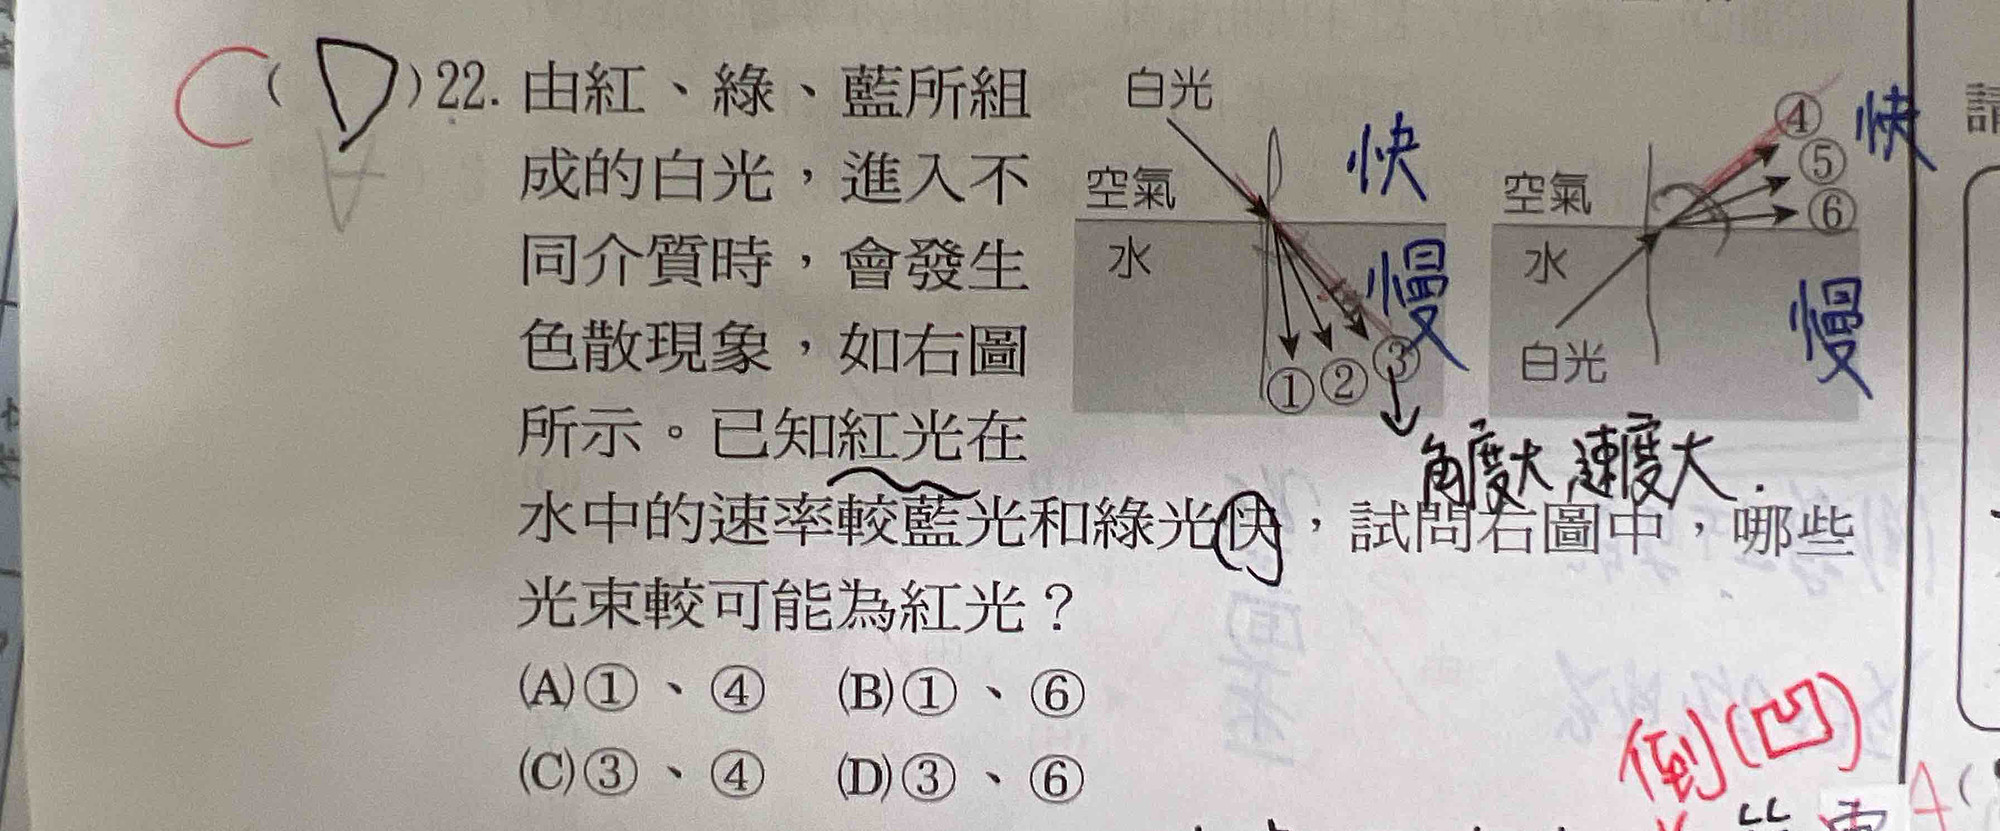 C ( D ) 22. 由紅、綠、藍所組
成的白光，進入不
同介質時，會發生
色散現象，如右圖
所示。已知紅光在
水中的速率較藍光和綠光快，試問右圖中，哪些
光束較可能為紅光？
(A)①、④ (B)①、⑥
(C)③、④ (D)③、⑥
白光
快
空氣
水
慢
① ② ③
角度大 速度大.
④ 快
⑤
空氣
⑥
水
慢
白光
請
倒(凹)
A (